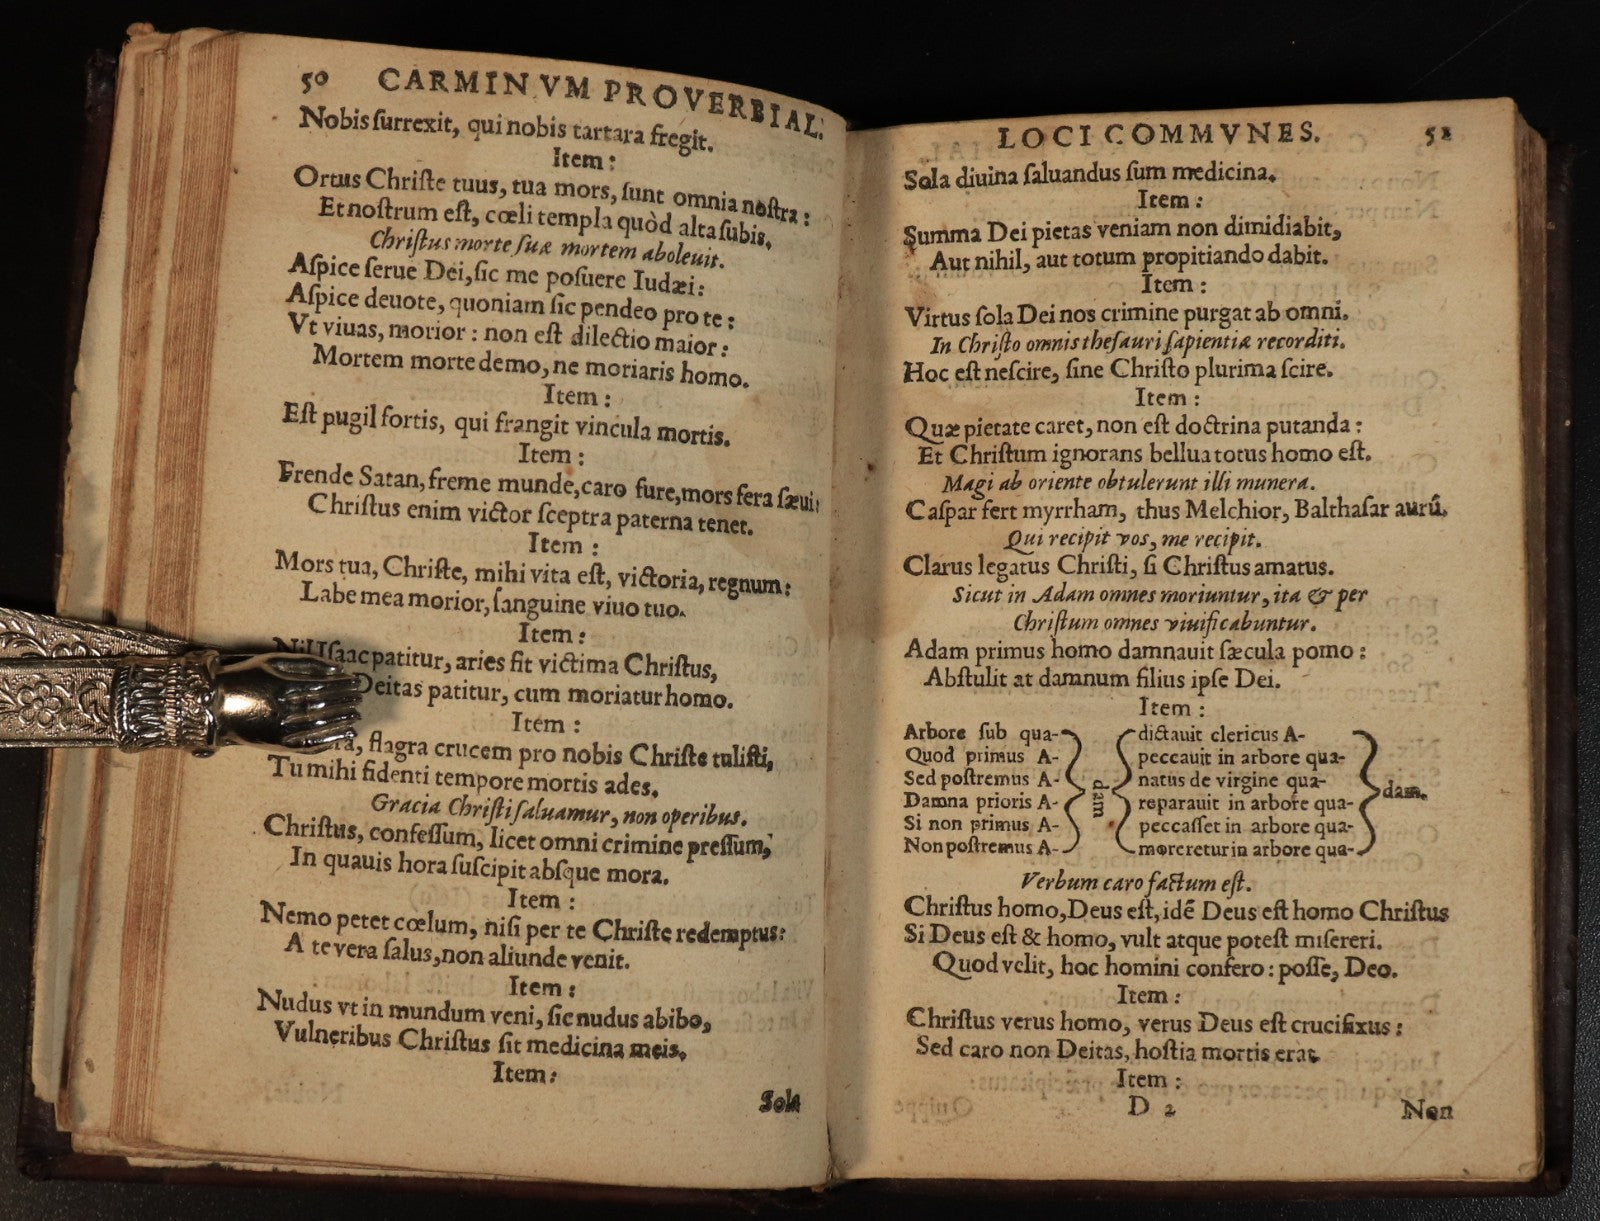 50 CARMINVM PROVERBIAL.
Nobis ſurrexit, qui nobis tartara fregit.
Item:
Ortus Chriſte tuus, tua mors, ſunt omnia noſtra:
Et noſtrum eſt, cœli templa quòd alta ſubis.
Chriſtus morte ſuæ mortem aboleuit.
Aſpice ſerue Dei, ſic me poſuere Iudæi:
Aſpice deuote, quoniam ſic pendeo pro te:
Vt viuas, morior: non eſt dilectio maior:
Mortem morte demo, ne moriaris homo.
Item:
Eſt pugil fortis, qui frangit vincula mortis.
Item:
Frende Satan, freme munde, caro fure, mors fera ſæui:
Chriſtus enim victor ſceptra paterna tenet.
Item:
Mors tua, Chriſte, mihi vita eſt, victoria, regnum:
Labe mea morior, ſanguine viuo tuo.
Item:
Nil Iſaac patitur, aries fit victima Chriſtus,
Deitas patitur, cum moriatur homo.
Item:
flagra crucem pro nobis Chriſte tuliſti,
Tu mihi fidenti tempore mortis ades.
Gracia Chriſti ſaluamur, non operibus.
Chriſtus, confeſſum, licet omni crimine preſſum,
In quauis hora ſuſcipit abſque mora.
Item:
Nemo petet cœlum, niſi per te Chriſte redemptus:
A te vera ſalus, non aliunde venit.
Item:
Nudus vt in mundum veni, ſic nudus abibo,
Vulneribus Chriſtus ſit medicina meis.
Item:
Sola
LOCI COMMVNES. 51
Sola diuina ſaluandus ſum medicina.
Item:
Summa Dei pietas veniam non dimidiabit,
Aut nihil, aut totum propitiando dabit.
Item:
Virtus ſola Dei nos crimine purgat ab omni.
In Chriſto omnis theſauri ſapientiæ recorditi.
Hoc eſt neſcire, ſine Chriſto plurima ſcire.
Item:
Quæ pietate caret, non eſt doctrina putanda:
Et Chriſtum ignorans bellua totus homo eſt.
Magi ab oriente obtulerunt illi munera.
Caſpar fert myrrham, thus Melchior, Balthaſar aurũ.
Qui recipit vos, me recipit.
Clarus legatus Chriſti, ſi Chriſtus amatus.
Sicut in Adam omnes moriuntur, ita & per
Chriſtum omnes viuificabuntur.
Adam primus homo damnauit ſæcula pomo:
Abſtulit at damnum filius ipſe Dei.
Item:
Arbore ſub qua- dictauit clericus A-
Quod primus A- peccauit in arbore qua-
Sed poſtremus A- natus de virgine qua-
Damna prioris A- dam reparauit in arbore qua- dam.
Si non primus A- peccaſſet in arbore qua-
Non poſtremus A- moreretur in arbore qua-
Verbum caro factum eſt.
Chriſtus homo, Deus eſt, idẽ Deus eſt homo Chriſtus
Si Deus eſt & homo, vult atque poteſt miſereri.
Quod velit, hoc homini confero: poſſe, Deo.
Item:
Chriſtus verus homo, verus Deus eſt crucifixus:
Sed caro non Deitas, hoſtia mortis erat
Item:
D 2 Non